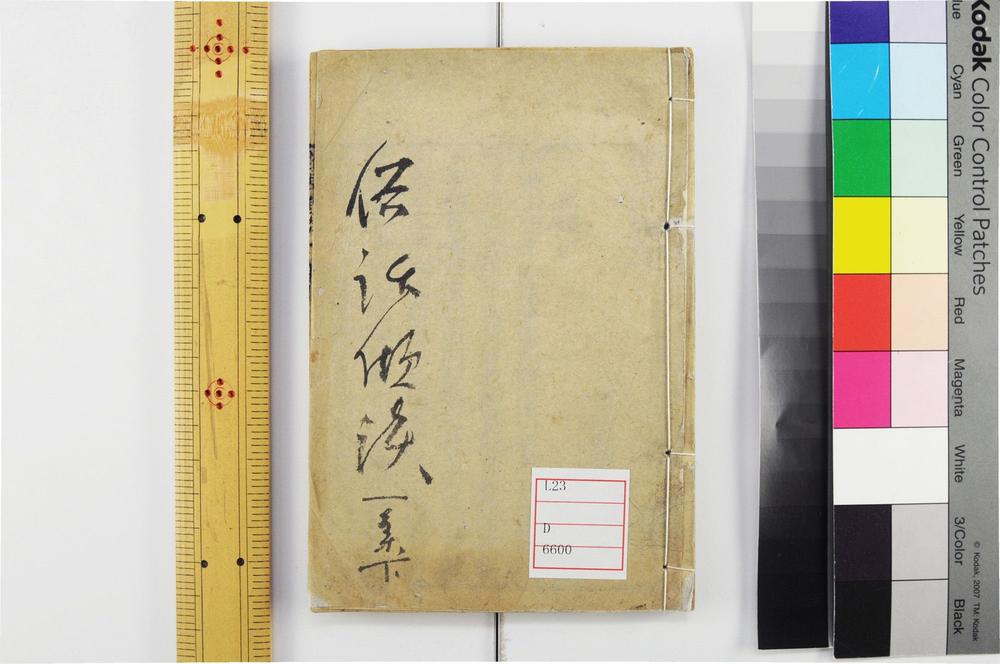 俗話傾談一集下
L23
D
6600
Kodak Color Control Patches
Blue
Cyan
Green
Yellow
Red
Magenta
White
3/Color
Black
© Kodak, 2007 TM: Kodak